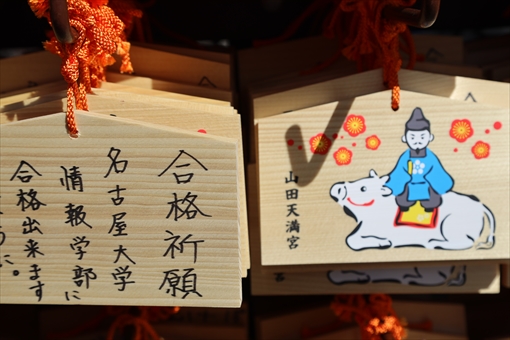 合格祈願
名古屋大学
情報学部に
合格出来ます
うに。
山田天満宮